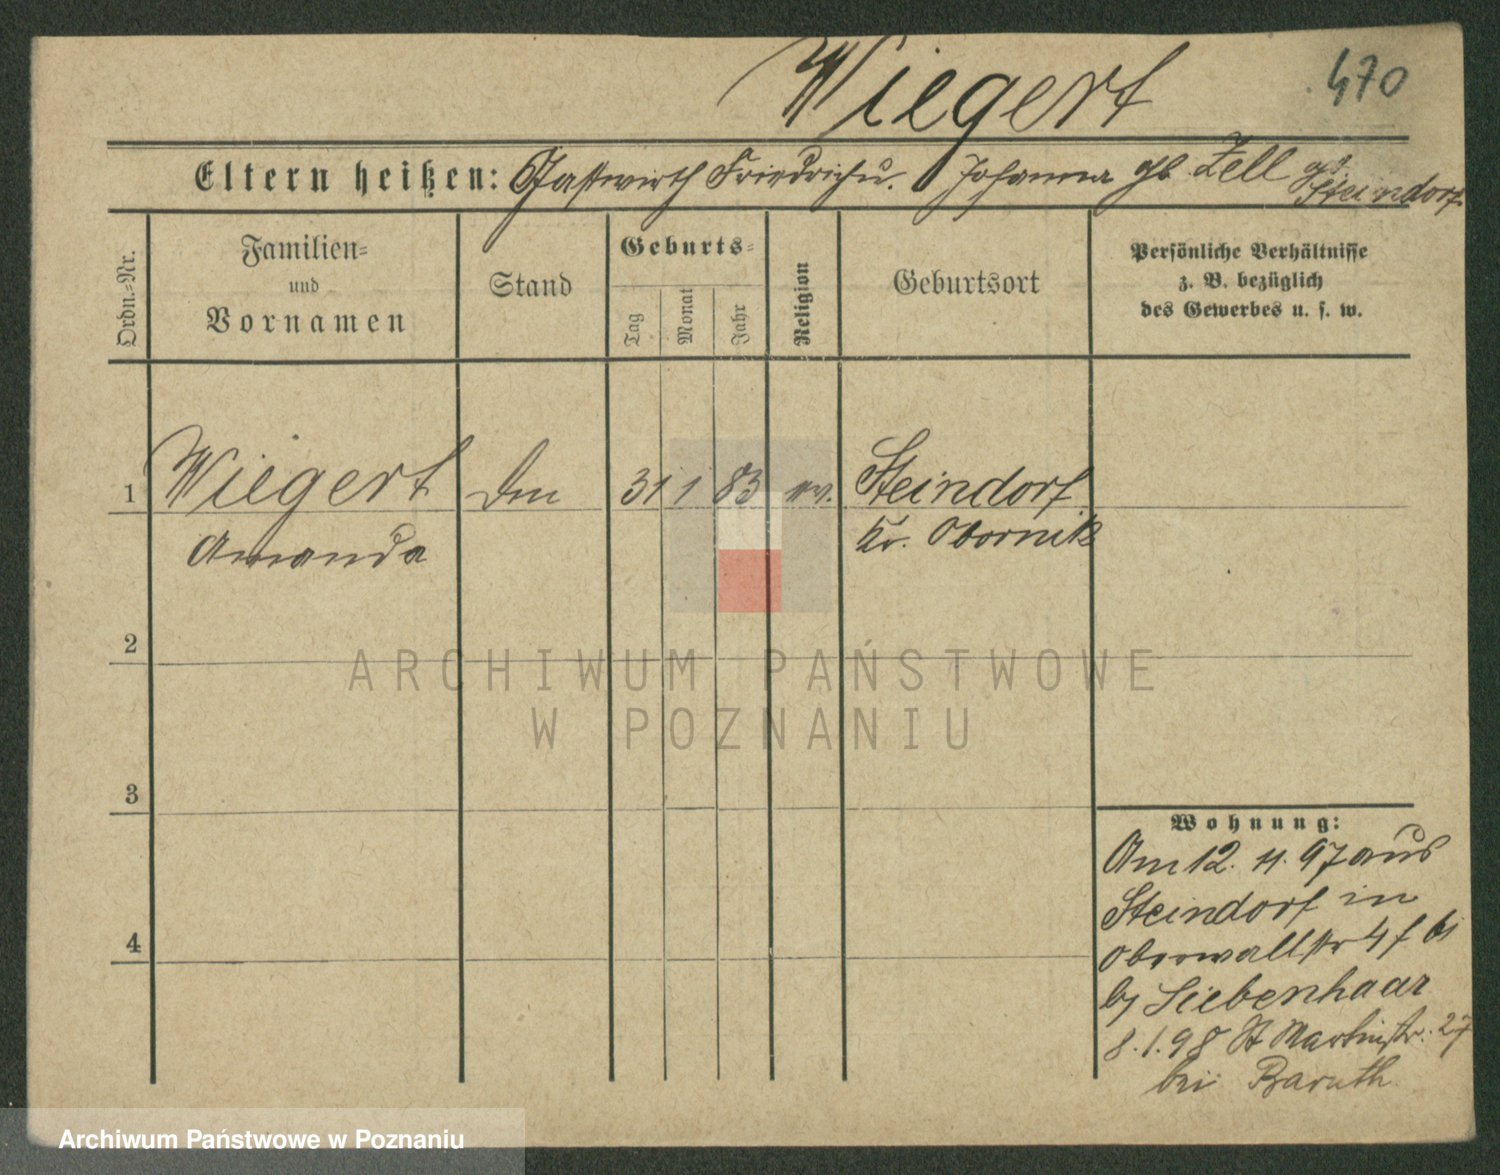 Wiegert
470
Eltern heißen: Gastwirth Friedrich u. Johanna gb Zell
Steindorf
Ordn.-Nr.
Familien-
und
Vornamen
Stand
Geburts-
Tag
Monat
Jahr
Religion
Geburtsort
Persönliche Verhältnisse
z. B. bezüglich
des Gewerbes u. s. w.
1
Wiegert
31
1
83
ev.
Steindorf
Amanda
Kr. Obornik
2
ARCHIWUM PAŃSTWOWE
W POZNANIU
3
Wohnung:
Am 12. 11. 97 aus
Steindorf in
Oberwallstr 4
Siebenhaar
8.1.98 St Martinstr. 27
bei Baruth
4
Archiwum Państwowe w Poznaniu